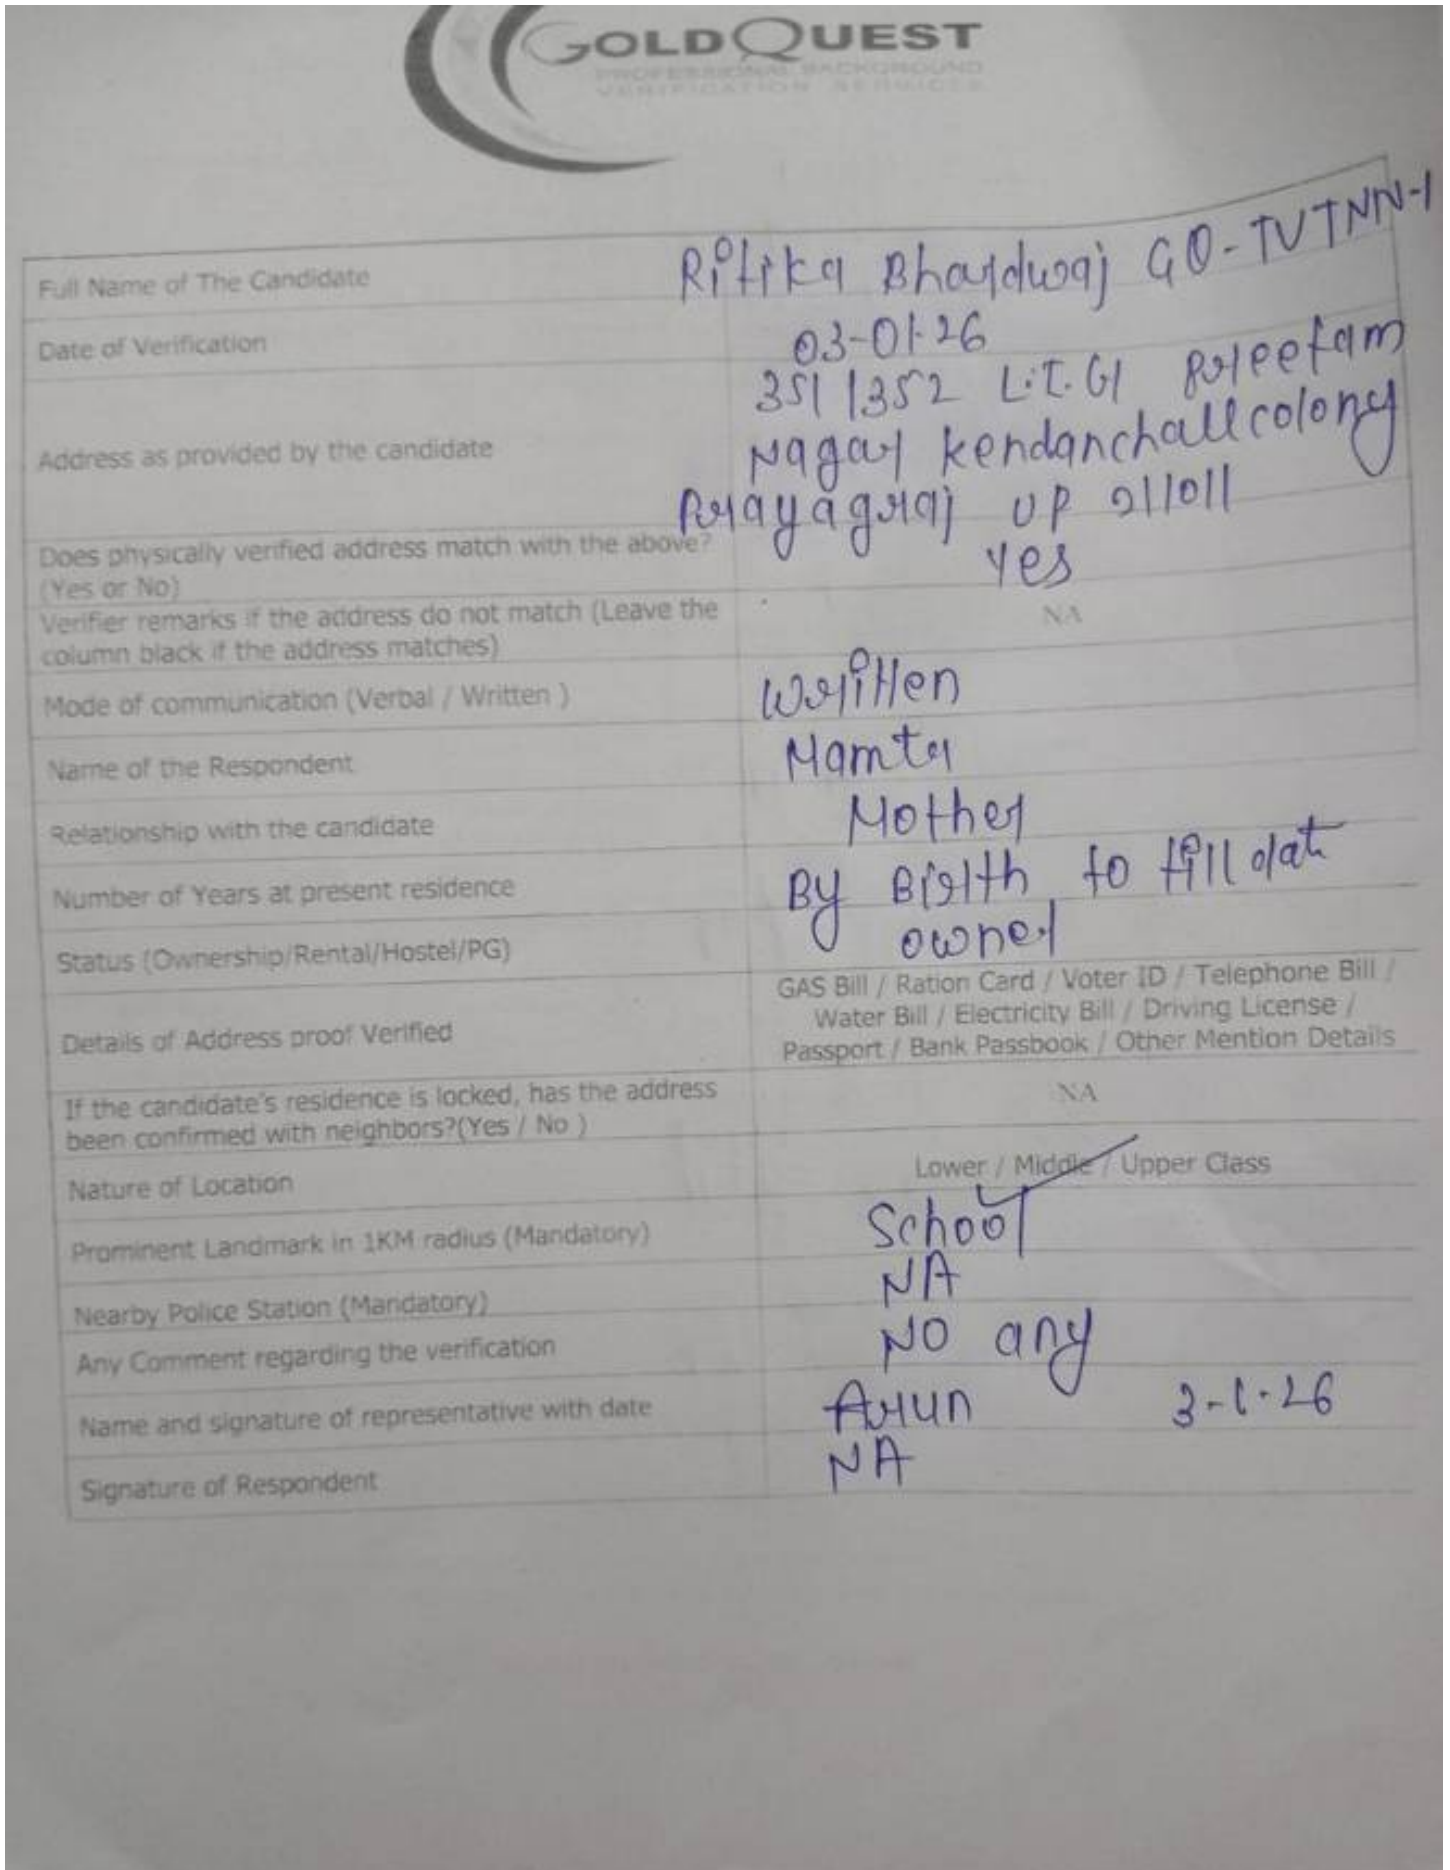 GOLDQUEST
PROFESSIONAL BACKGROUND
VERIFICATION SERVICES
Full Name of The Candidate Ritika Bhardwaj GQ-TVTNN-1
Date of Verification 03-01-26
Address as provided by the candidate 351/352 L.I.G Preetam
Nagar kendanchall colony
Prayagraj UP 211011
Does physically verified address match with the above?
(Yes or No) Yes
Verifier remarks if the address do not match (Leave the
column black if the address matches) NA
Mode of communication (Verbal / Written ) Written
Name of the Respondent Mamta
Relationship with the candidate Mother
Number of Years at present residence By Birth to till dat
Status (Ownership/Rental/Hostel/PG) owner
Details of Address proof Verified GAS Bill / Ration Card / Voter ID / Telephone Bill /
Water Bill / Electricity Bill / Driving License /
Passport / Bank Passbook / Other Mention Details
If the candidate's residence is locked, has the address
been confirmed with neighbors?(Yes / No ) NA
Nature of Location Lower / Middle / Upper Class
Prominent Landmark in 1KM radius (Mandatory) School
Nearby Police Station (Mandatory) NA
Any Comment regarding the verification NO any
Name and signature of representative with date Arun 3-1-26
Signature of Respondent NA